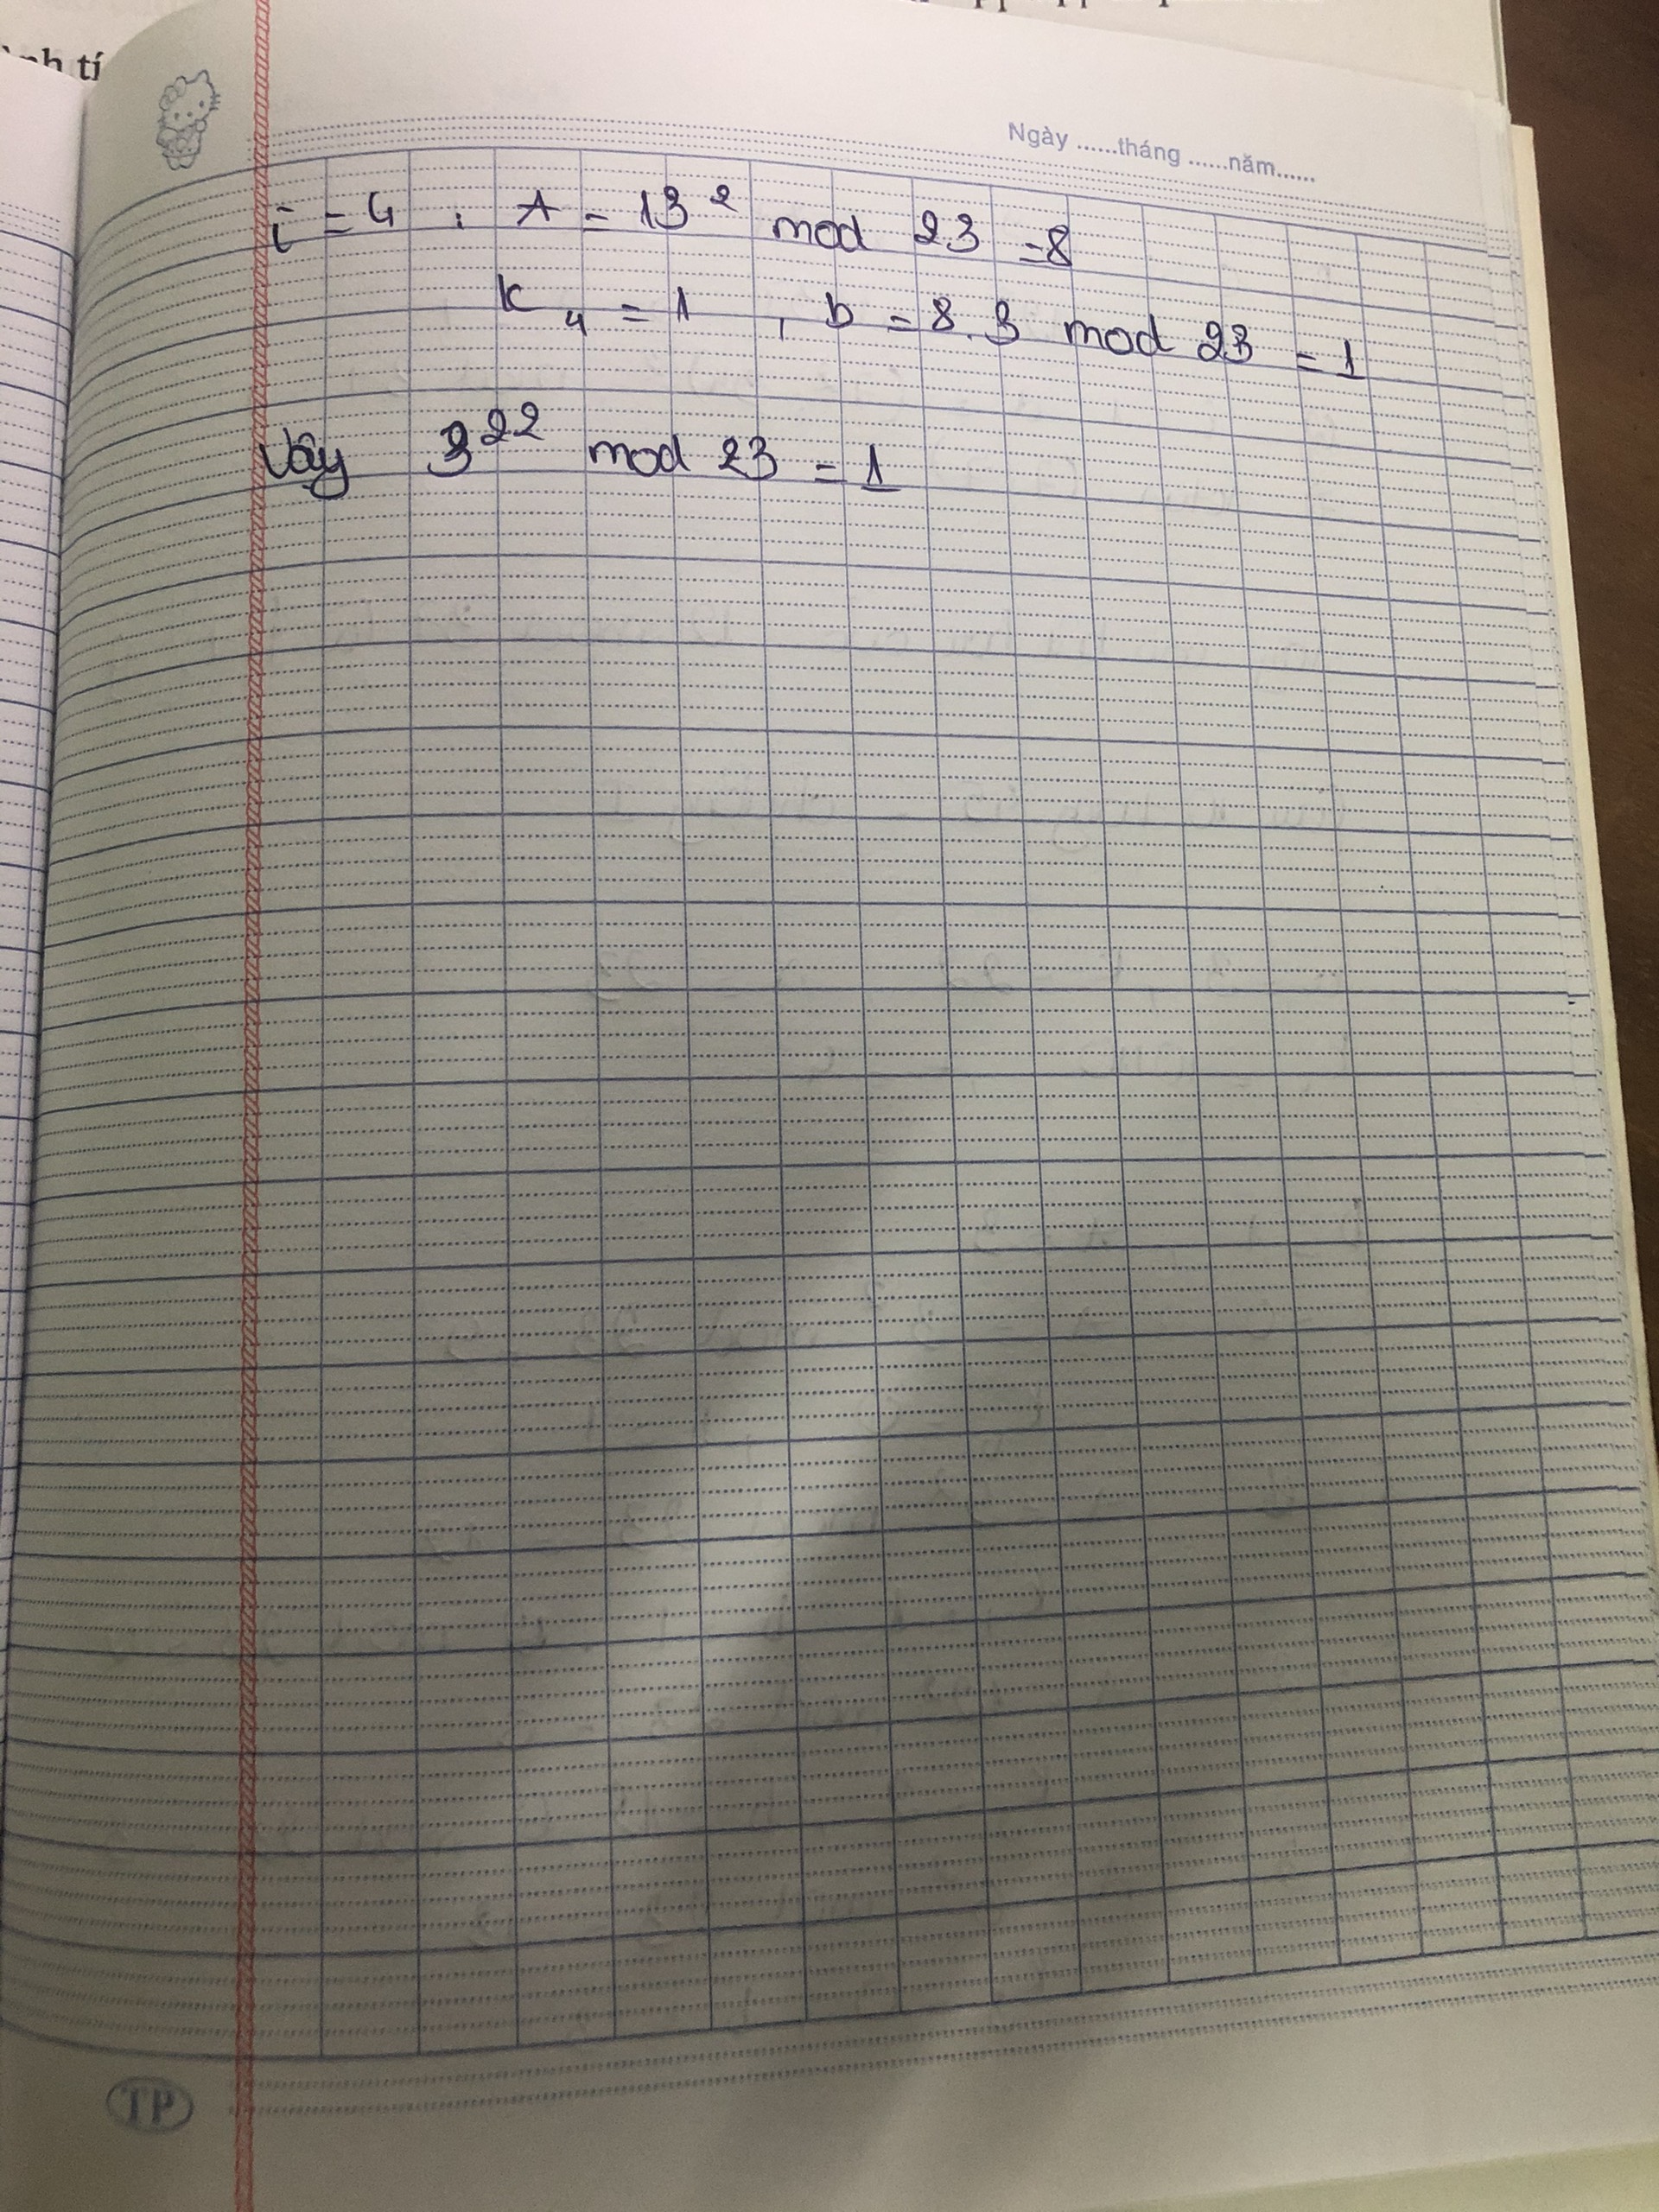 Ngày ......tháng ......năm......
i = 4 : A = 13² mod 23 = 8
k₄ = 1 , b = 8.3 mod 23 = 1
Vậy 3²² mod 23 = 1
TP